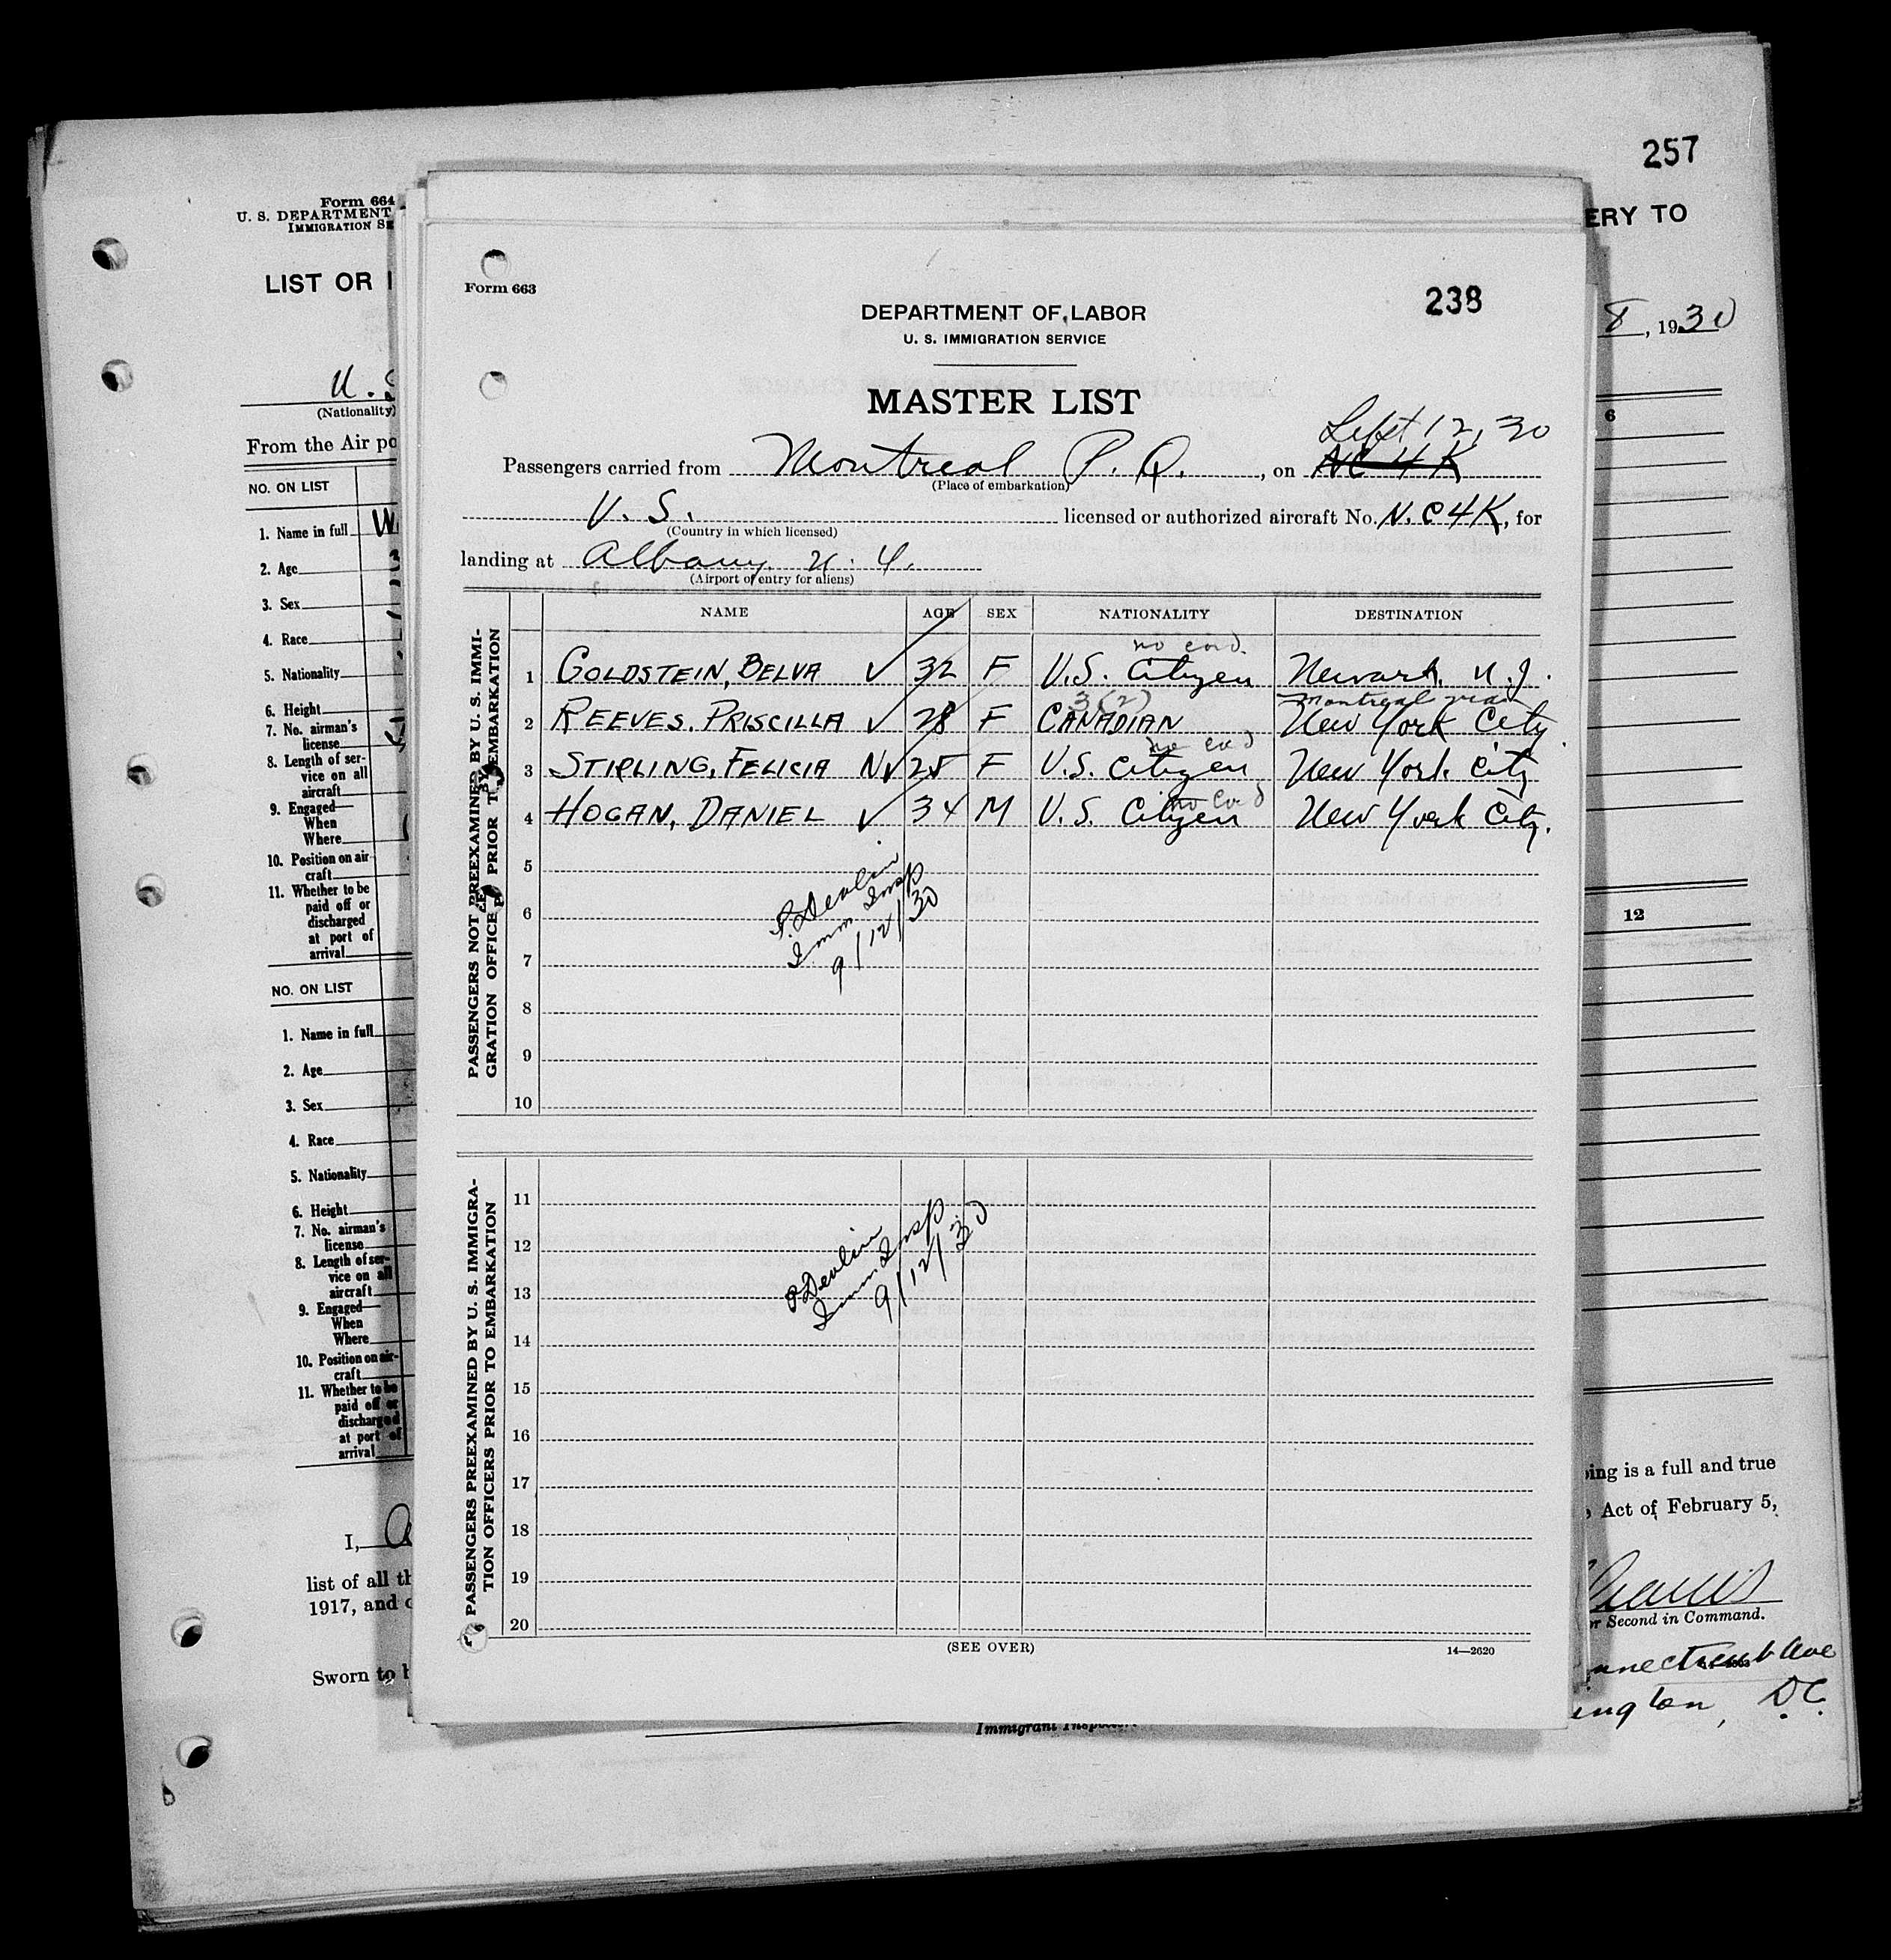 257
Form 664
U. S. DEPARTMENT
IMMIGRATION SE
ERY TO
LIST OR
8, 1930
U. S
(Nationality)
From the Air po
6
NO. ON LIST
1. Name in full W
2. Age 3
3. Sex
4. Race
5. Nationality
6. Height
7. No. airman's
license
8. Length of ser-
vice on all
aircraft
9. Engaged—
When
Where
10. Position on air-
craft
11. Whether to be
paid off or
discharged
at port of
arrival
12
NO. ON LIST
1. Name in full
2. Age
3. Sex
4. Race
5. Nationality
6. Height
7. No. airman's
license
8. Length of ser-
vice on all
aircraft
9. Engaged—
When
Where
10. Position on air-
craft
11. Whether to be
paid off or
discharged
at port of
arrival
I,
list of all th
1917, and
Sworn to b
Form 663
238
DEPARTMENT OF LABOR
U. S. IMMIGRATION SERVICE
MASTER LIST
Sept 12, 30
Passengers carried from Montreal P. Q., on NC 4 K
(Place of embarkation)
U. S. licensed or authorized aircraft No. N.C4K, for
(Country in which licensed)
landing at Albany N. Y.
(Airport of entry for aliens)
NAME AGE SEX NATIONALITY DESTINATION
PASSENGERS NOT PREEXAMINED BY U. S. IMMI-
GRATION OFFICERS PRIOR TO EMBARKATION
no cond.
1 GOLDSTEIN, BELVA ✓ 32 F U.S. Citizen Newark, N.J.
3(2) Montreal
2 REEVES. PRISCILLA ✓ 28 F CANADIAN New York City
no cond
3 STIRLING, FELICIA N ✓ 25 F U.S. Citizen New York City
no cond
4 HOGAN, DANIEL ✓ 34 M U.S. Citizen New York City.
5
6
7
8
9
10
P. Devlin
Imm Insp
9/12/30
PASSENGERS PREEXAMINED BY U. S. IMMIGRA-
TION OFFICERS PRIOR TO EMBARKATION
11
12
13
14
15
16
17
18
19
20
P Devlin
Imm. Insp
9/12/30
(SEE OVER)
14—2620
Immigrant Inspector.
ing is a full and true
Act of February 5,
or Second in Command.
nnecticut Ave
ington, D.C.